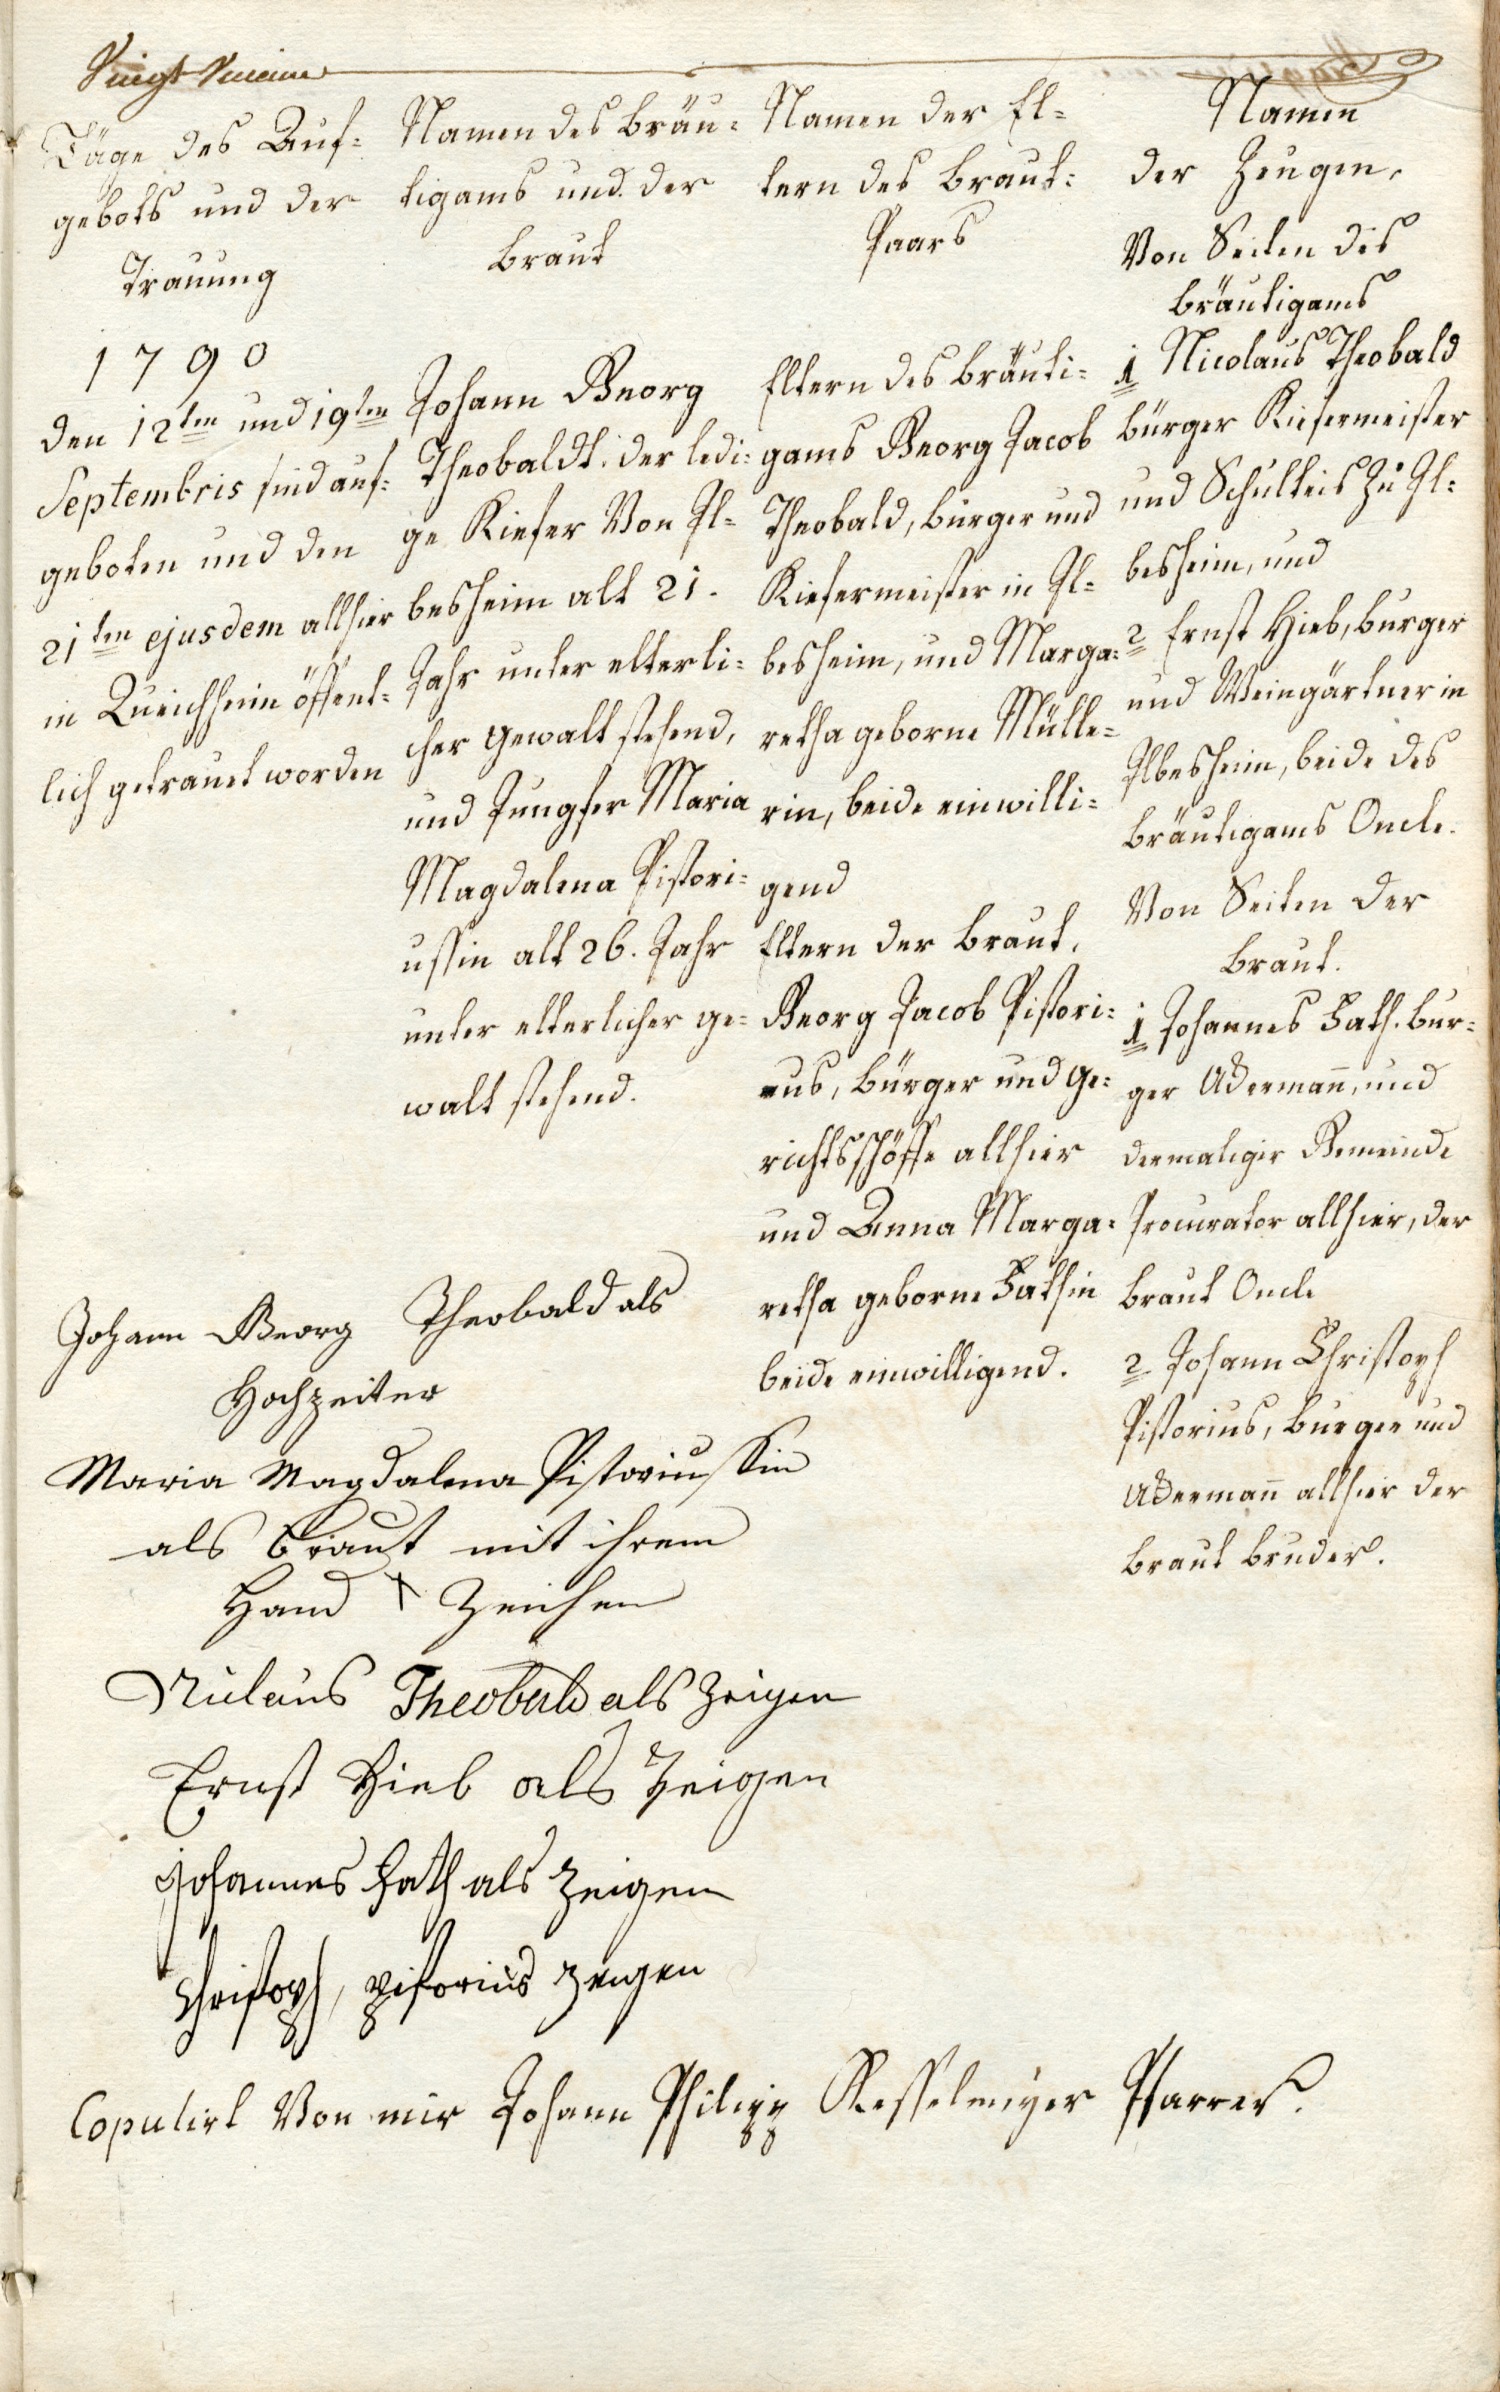 Vingt Neuvieme
Täge des Auf-
gebots und der
Trauung
1790
den 12ten und 19ten
Septembris sind auf-
geboten und den
21ten ejusdem allhier
in Queichheim öffent-
lich getrauet worden
Namen des Bräu-
tigams und der
Braut
Johann Georg
Theobaldt. der ledi-
ge Kiefer Von Il-
besheim alt 21.
Jahr unter elterli-
cher gewalt stehend,
und Jungfer Maria
Magdalena Pistori-
ussin alt 26. Jahr
unter elterlicher ge-
walt stehend.
Namen der El-
tern des Braut-
Paars
Eltern des Bräuti-
gams Georg Jacob
Theobald, bürger und
Kiefermeister in Il-
besheim, und Marga-
retha geborne Mülle-
rin, beide einwilli-
gend
Eltern der Braut,
Georg Jacob Pistori-
us, bürger und ge-
richtsschöffe allhier
und Anna Marga-
retha geborne Hathin
beide einwilligend.
Namen
der Zeugen,
Von Seiten des
Bräutigams
1 Nicolaus Theobald
bürger Kiefermeister
und Schulteis zu Il-
besheim, und
2 Ernst Hieb, burger
und Weingärtner in
Ilbesheim, beide des
Bräutigams Oncle.
Von Seiten der
Braut.
1 Johannes Hath. bur-
ger Ackermann, und
dermaliger Gemeinde
Procurator allhier, der
Braut Oncle
2 Johann Christoph
Pistorius, burger und
Ackermann allhier der
Braut bruder.
Johann Georg Theobald als
Hochzeiter
Maria Magdalena Pistoriussin
als Braut mit ihrem
Hand x Zeichen
Niclaus Theobald als Zeigen
Ernst Hieb als Zeigen
Johannes Hath als Zeigen
Christoph, pistorius zeugen
Copulirt Von mir Johann Philipp Kesselmeyer Pfarrer.